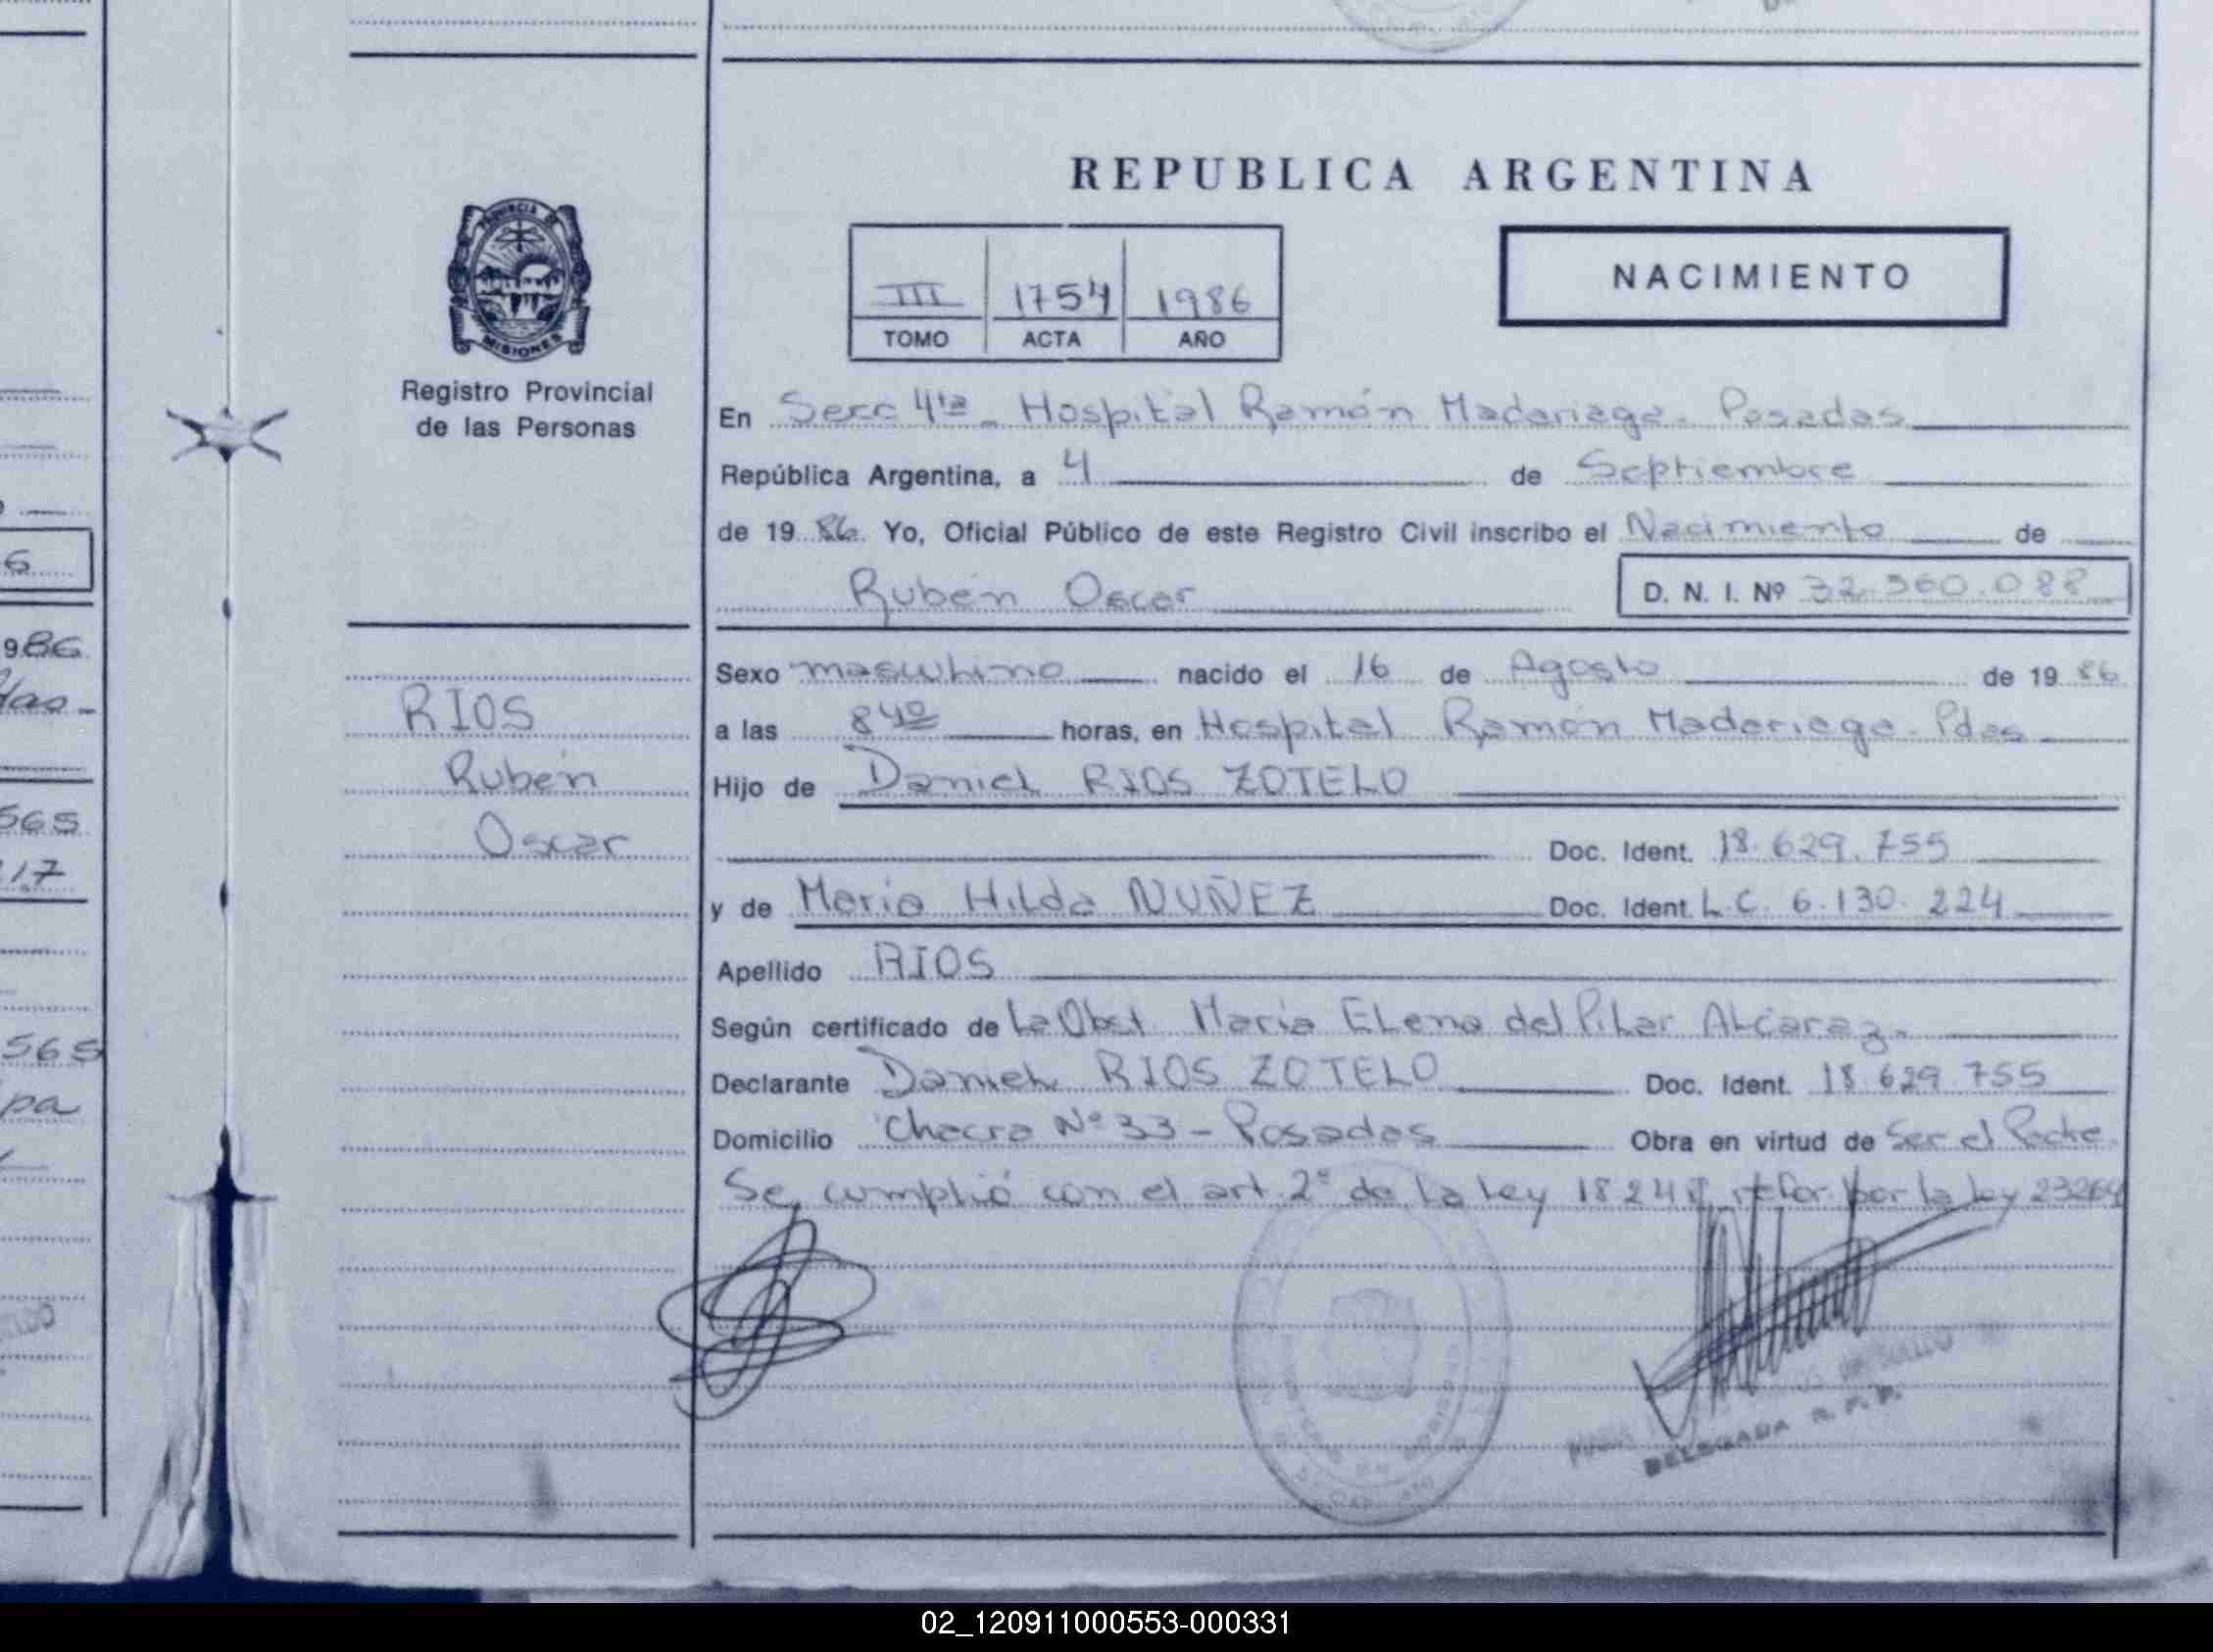 REPUBLICA ARGENTINA
PROVINCIA DE
MISIONES
Registro Provincial
de las Personas
III 1754 1986
TOMO ACTA AÑO
NACIMIENTO
En Secc 4ta - Hospital Ramón Madariaga - Posadas
República Argentina, a 4 de Septiembre
de 1986. Yo, Oficial Público de este Registro Civil inscribo el Nacimiento de
Rubén Oscar D. N. I. Nº 32.360.088
Sexo masculino nacido el 16 de Agosto de 1986
a las 8 40 horas, en Hospital Ramón Madariaga - Pdas
Hijo de Daniel RIOS ZOTELO
Doc. Ident. 18.629.755
y de María Hilda NUÑEZ Doc. Ident. L.C. 6.130.224
Apellido RIOS
Según certificado de La Obst María Elena del Pilar Alcaraz.
Declarante Daniel RIOS ZOTELO Doc. Ident. 18.629.755
Domicilio Chacra Nº 33 - Posadas Obra en virtud de Ser el Padre
Se cumplió con el art. 2º de la ley 18248 refor. por la ley 23264
RIOS
Rubén
Oscar
DELEGADA R. P. P.
6
986
das -
565
17
565
pa
02_120911000553-000331